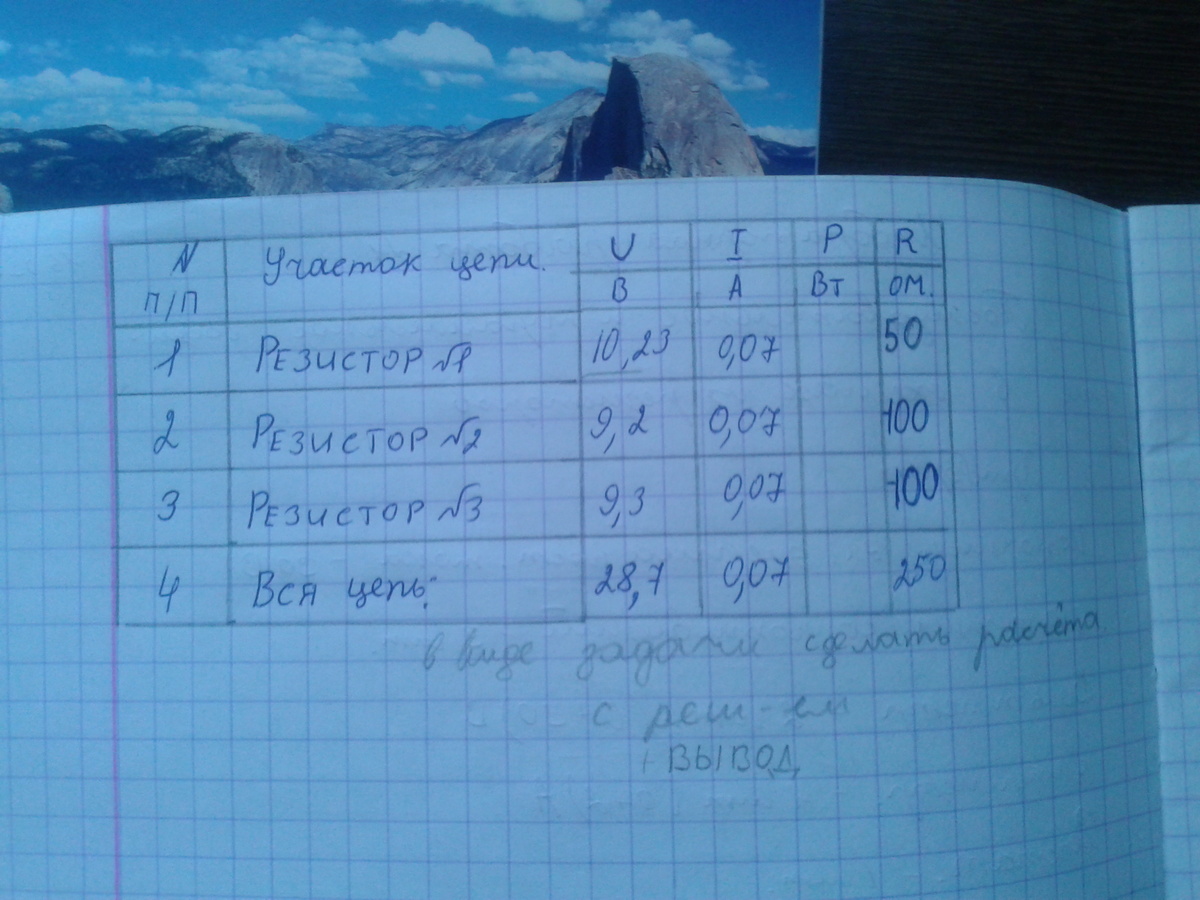 N Участок цепи. U I P R
П/П В А Вт ом.
1 Резистор №1 10,23 0,07 50
2 Резистор №2 9,2 0,07 100
3 Резистор №3 9,3 0,07 100
4 Вся цепь: 28,7 0,07 250
в виде задачи сделать расчёта
с реш-ем
+ ВЫВОД